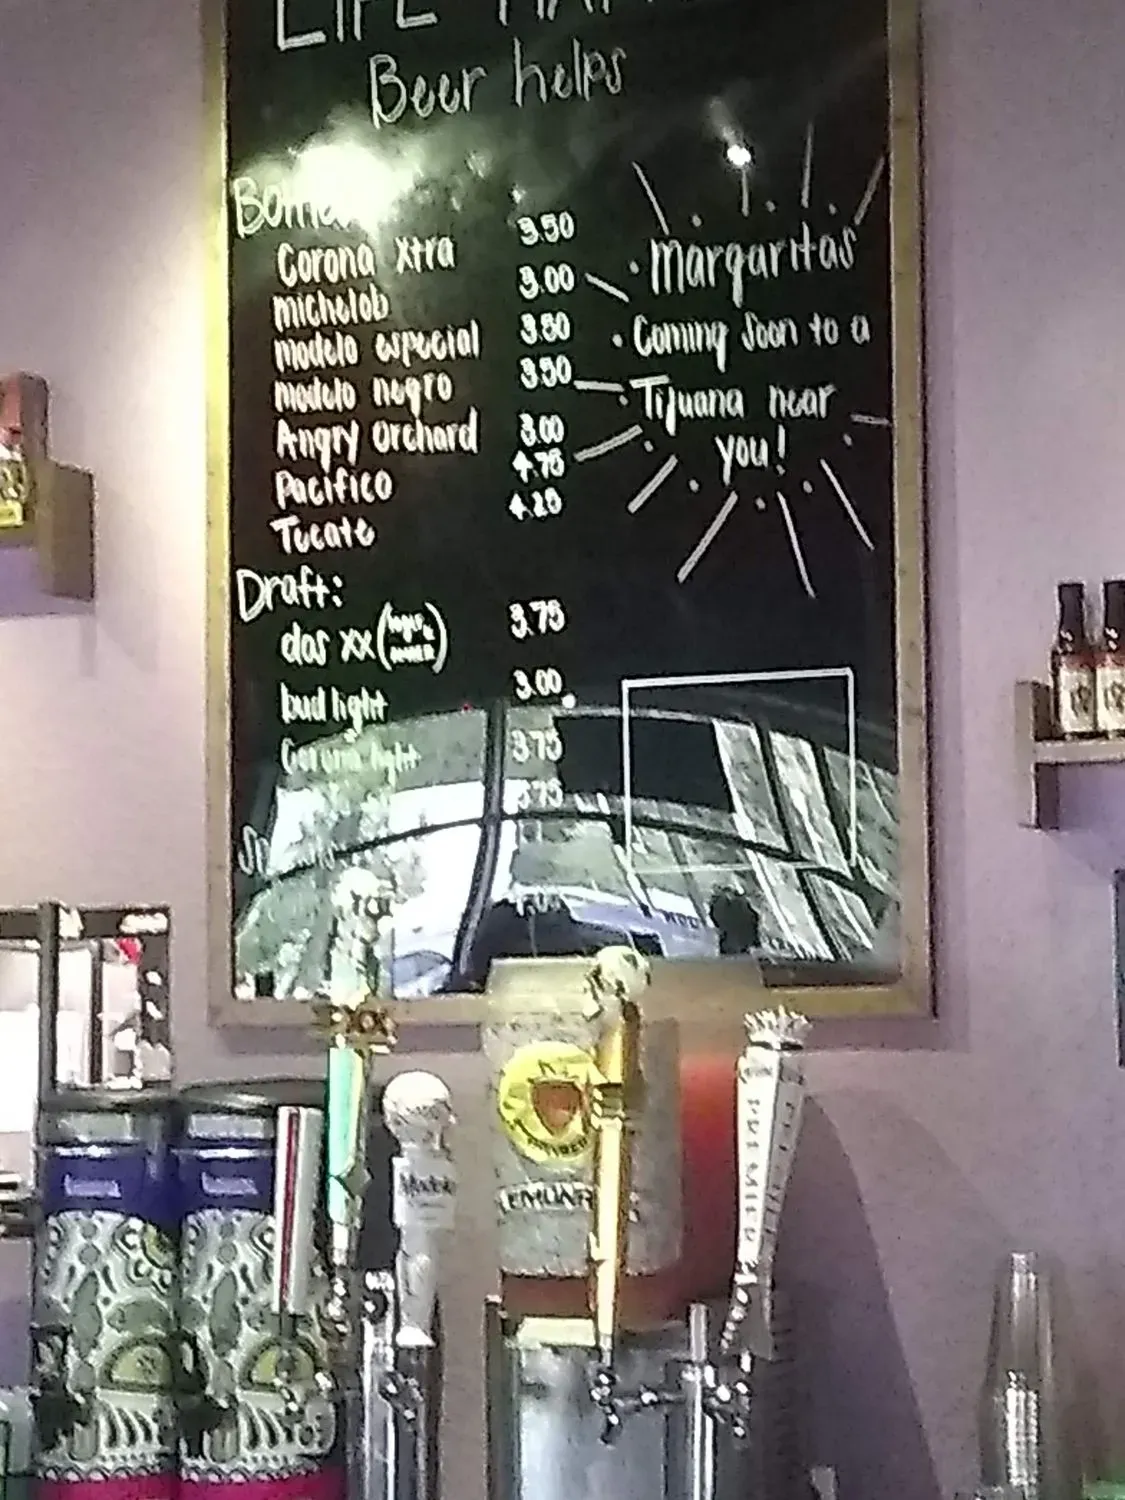 Beer helps
Corona Xtra 3.50
michelob 3.00
modelo especial 3.50
modelo negro 3.50
Angry Orchard 3.00
Pacifico 4.75
Tecate 4.25
Draft:
dos xx 3.75
bud light 3.00
Corona light 3.75
3.75
margaritas
Coming Soon to a
Tijuana near
you!
XX
Modelo
PREMIER